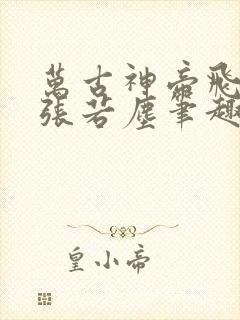 萬古神帝飛
張若塵筆趣
皇小帝